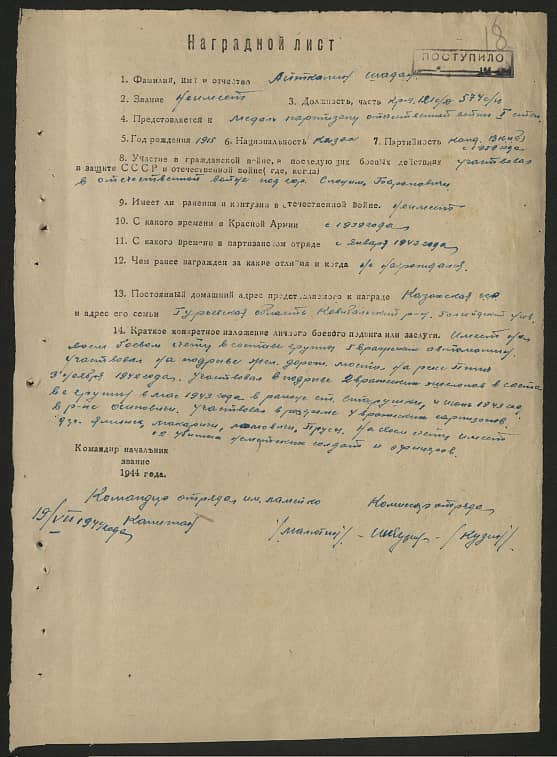 18
Наградной лист
ПОСТУПИЛО
1. Фамилия, имя и отчество Айткалиев
2. Звание неимеет 3. Должность, часть
4. Представляется к медаль партизану отечественной войны I степ.
5. Год рождения 1915 6. Национальность казах 7. Партийность канд. ВКП(б)
с 1939 года
8. Участие в гражданской войне, в последующих боевых действиях участвовал
в защите СССР и отечественной войне (где, когда)
в отечественной войне под гор. Слоним, Барановичи
9. Имеет ли ранения и контузия в отечественной войне. неимеет
10. С какого времени в Красной Армии с 1939 года
11. С какого времени в партизанском отряде с января 1942 года
12. Чем ранее награжден за какие отличия и когда не награждался.
13. Постоянный домашний адрес представляемого к награде Казахская сср
и адрес его семьи Гурьевская область
14. Краткое конкретное изложение личного боевого подвига или заслуги. Имеет на
своем боевом счету в составе группы 5 вражеских автомашин.
Участвовал на подрыве жел. дорож. моста на реке
3 ноября 1942 года. Участвовал в подрыве 2 вражеских эшелонов в соста
ве группы в мае 1943 года в районе ст. Старушки, и июнь 1943 года
в р-не Осиповичи. Участвовал в разгроме 4 вражеских гарнизонов
На своем счету имеет
12 убитых немецких солдат и офицеров.
Командир начальник
звание
1944 года.
Командир отряда им. Комиссар отряда
19/VII 1944 года Капитан /Малютин/ /Кудин/